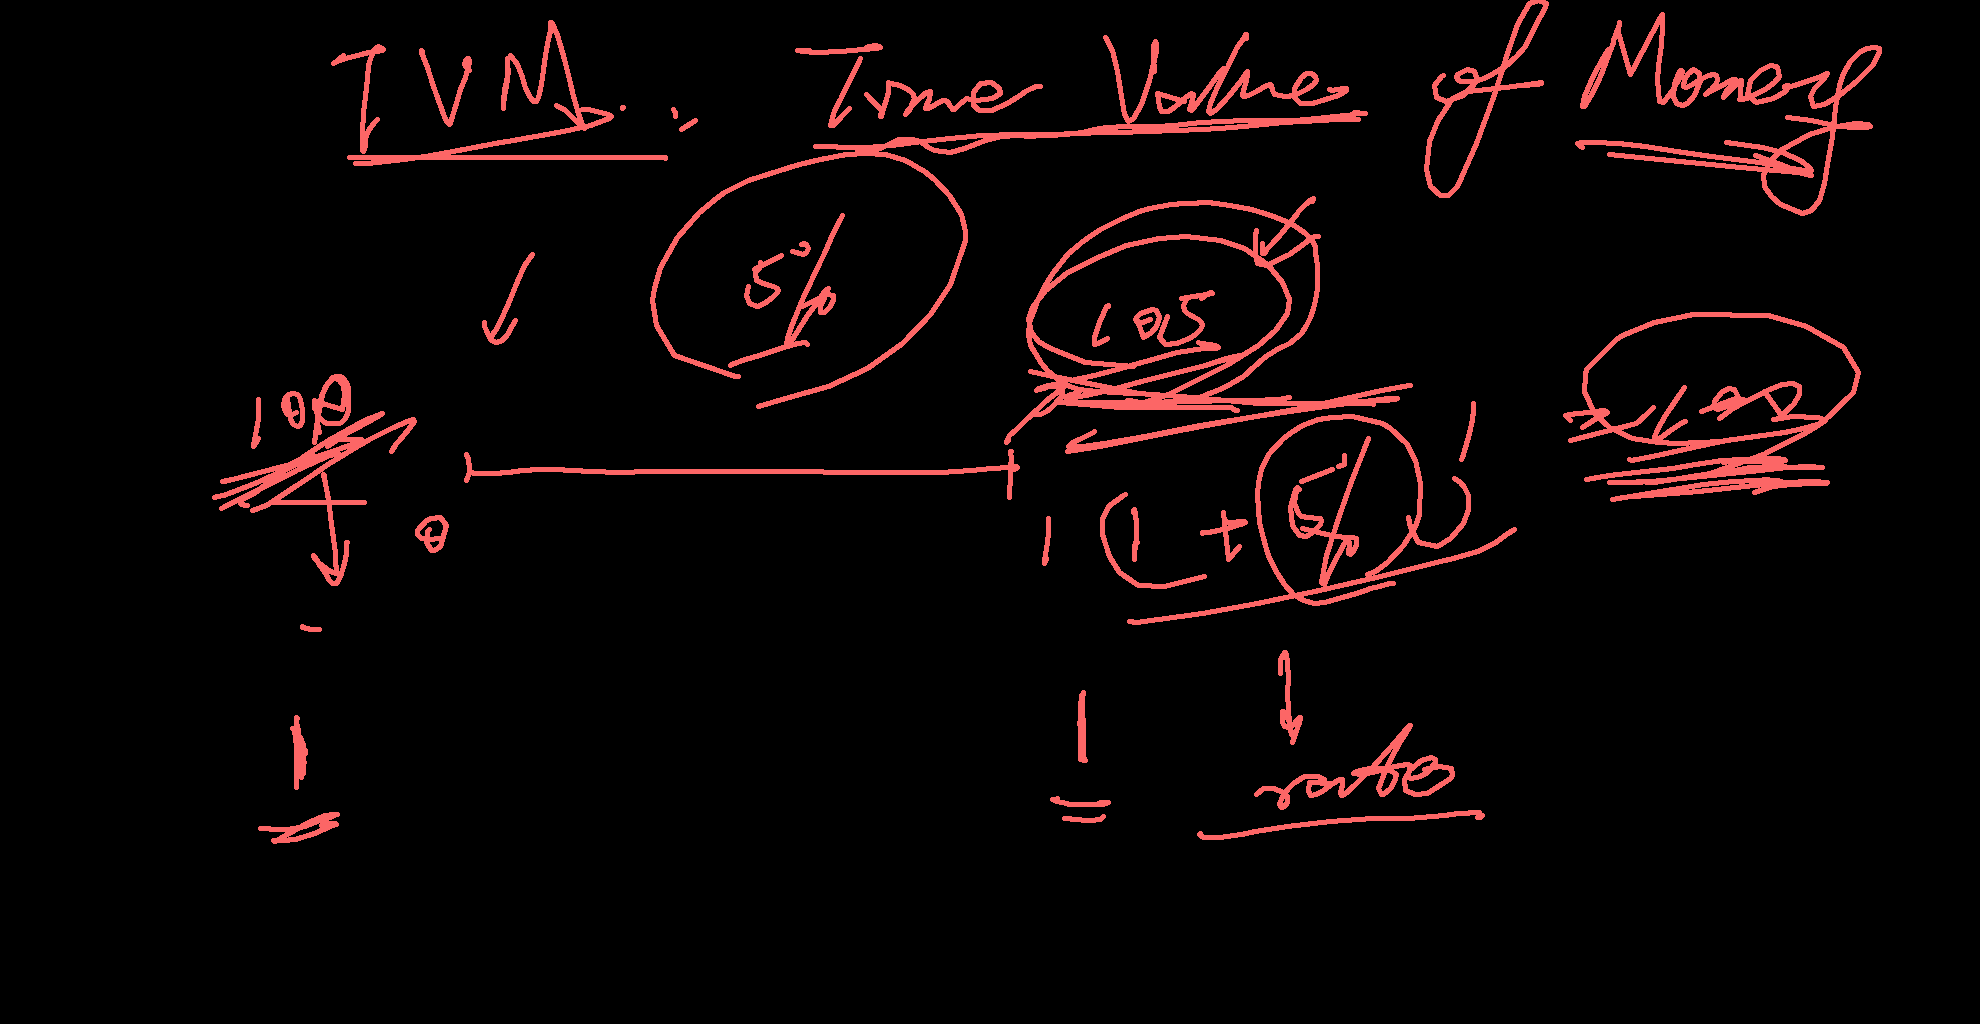 TVM: Time Value of Money
5%
105
100
100
0
1 (1 + 5%)¹
1
1
rate